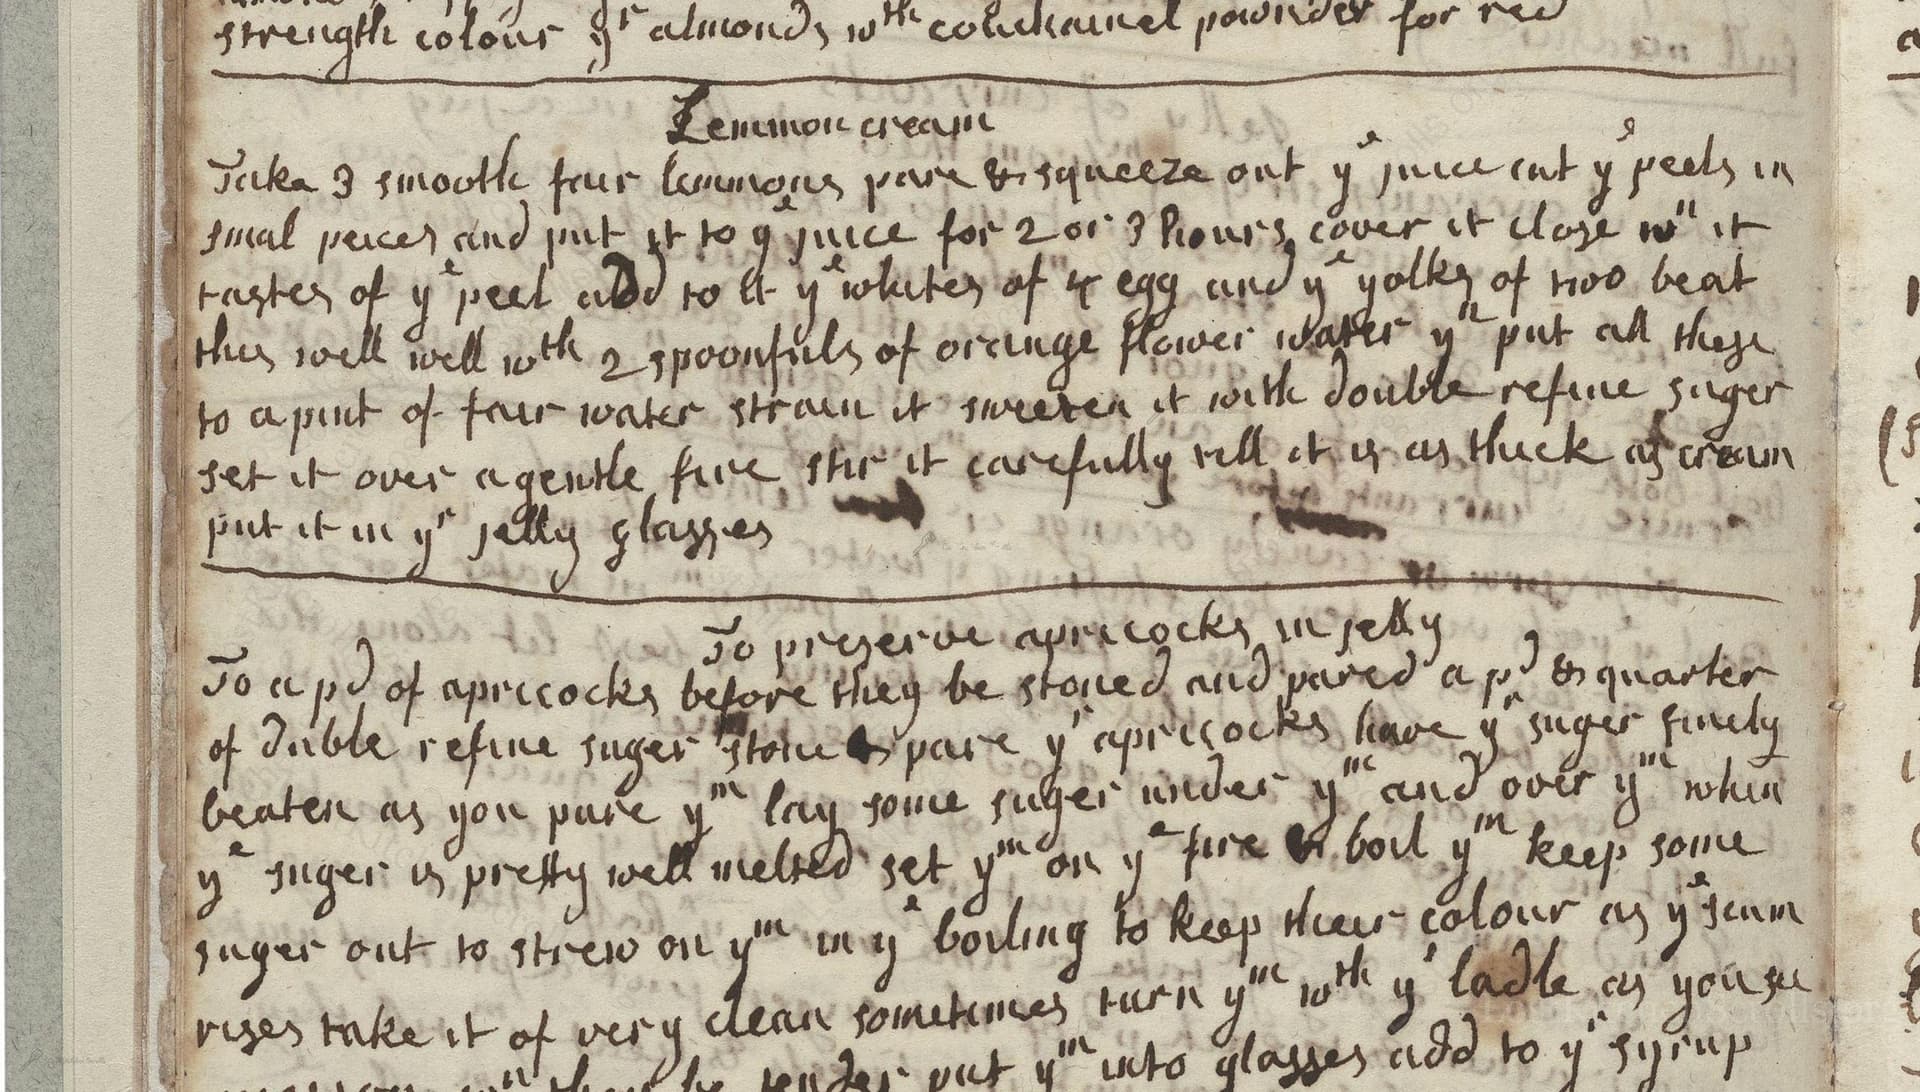 strength colour yr almonds wth couchaneel pownder for red
Lemmon cream
Take 3 smooth fair lemmons pare & squeeze out ye juice cut ye peels in
smal peices and put it to ye juice for 2 or 3 hours cover it close wn it
tastes of ye peel add to it ye whites of 4 egg and ye yolks of two beat
this well well wth 2 spoonfuls of orange flower water yn put all these
to a pint of fair water strain it sweeten it with double refine suger
set it over a gentle fire stir it carefully till it is as thick as cream
put it in yr jelly glasses
To preserve apricocks in jelly
To a pd of apricocks before they be stoned and pared a pd & quarter
of duble refine suger stone & pare yr apricocks have yr suger finely
beaten as you pare ym lay some suger under ym and over ym when
ye suger is pretty well melted set ym on ye fire & boil ym keep some
suger out to strew on ym in ye boiling to keep their colour as ye scum
rises take it of very clean sometimes turn ym wth yr ladle as you see
wn they be tender put ym into glasses add to yr syrup